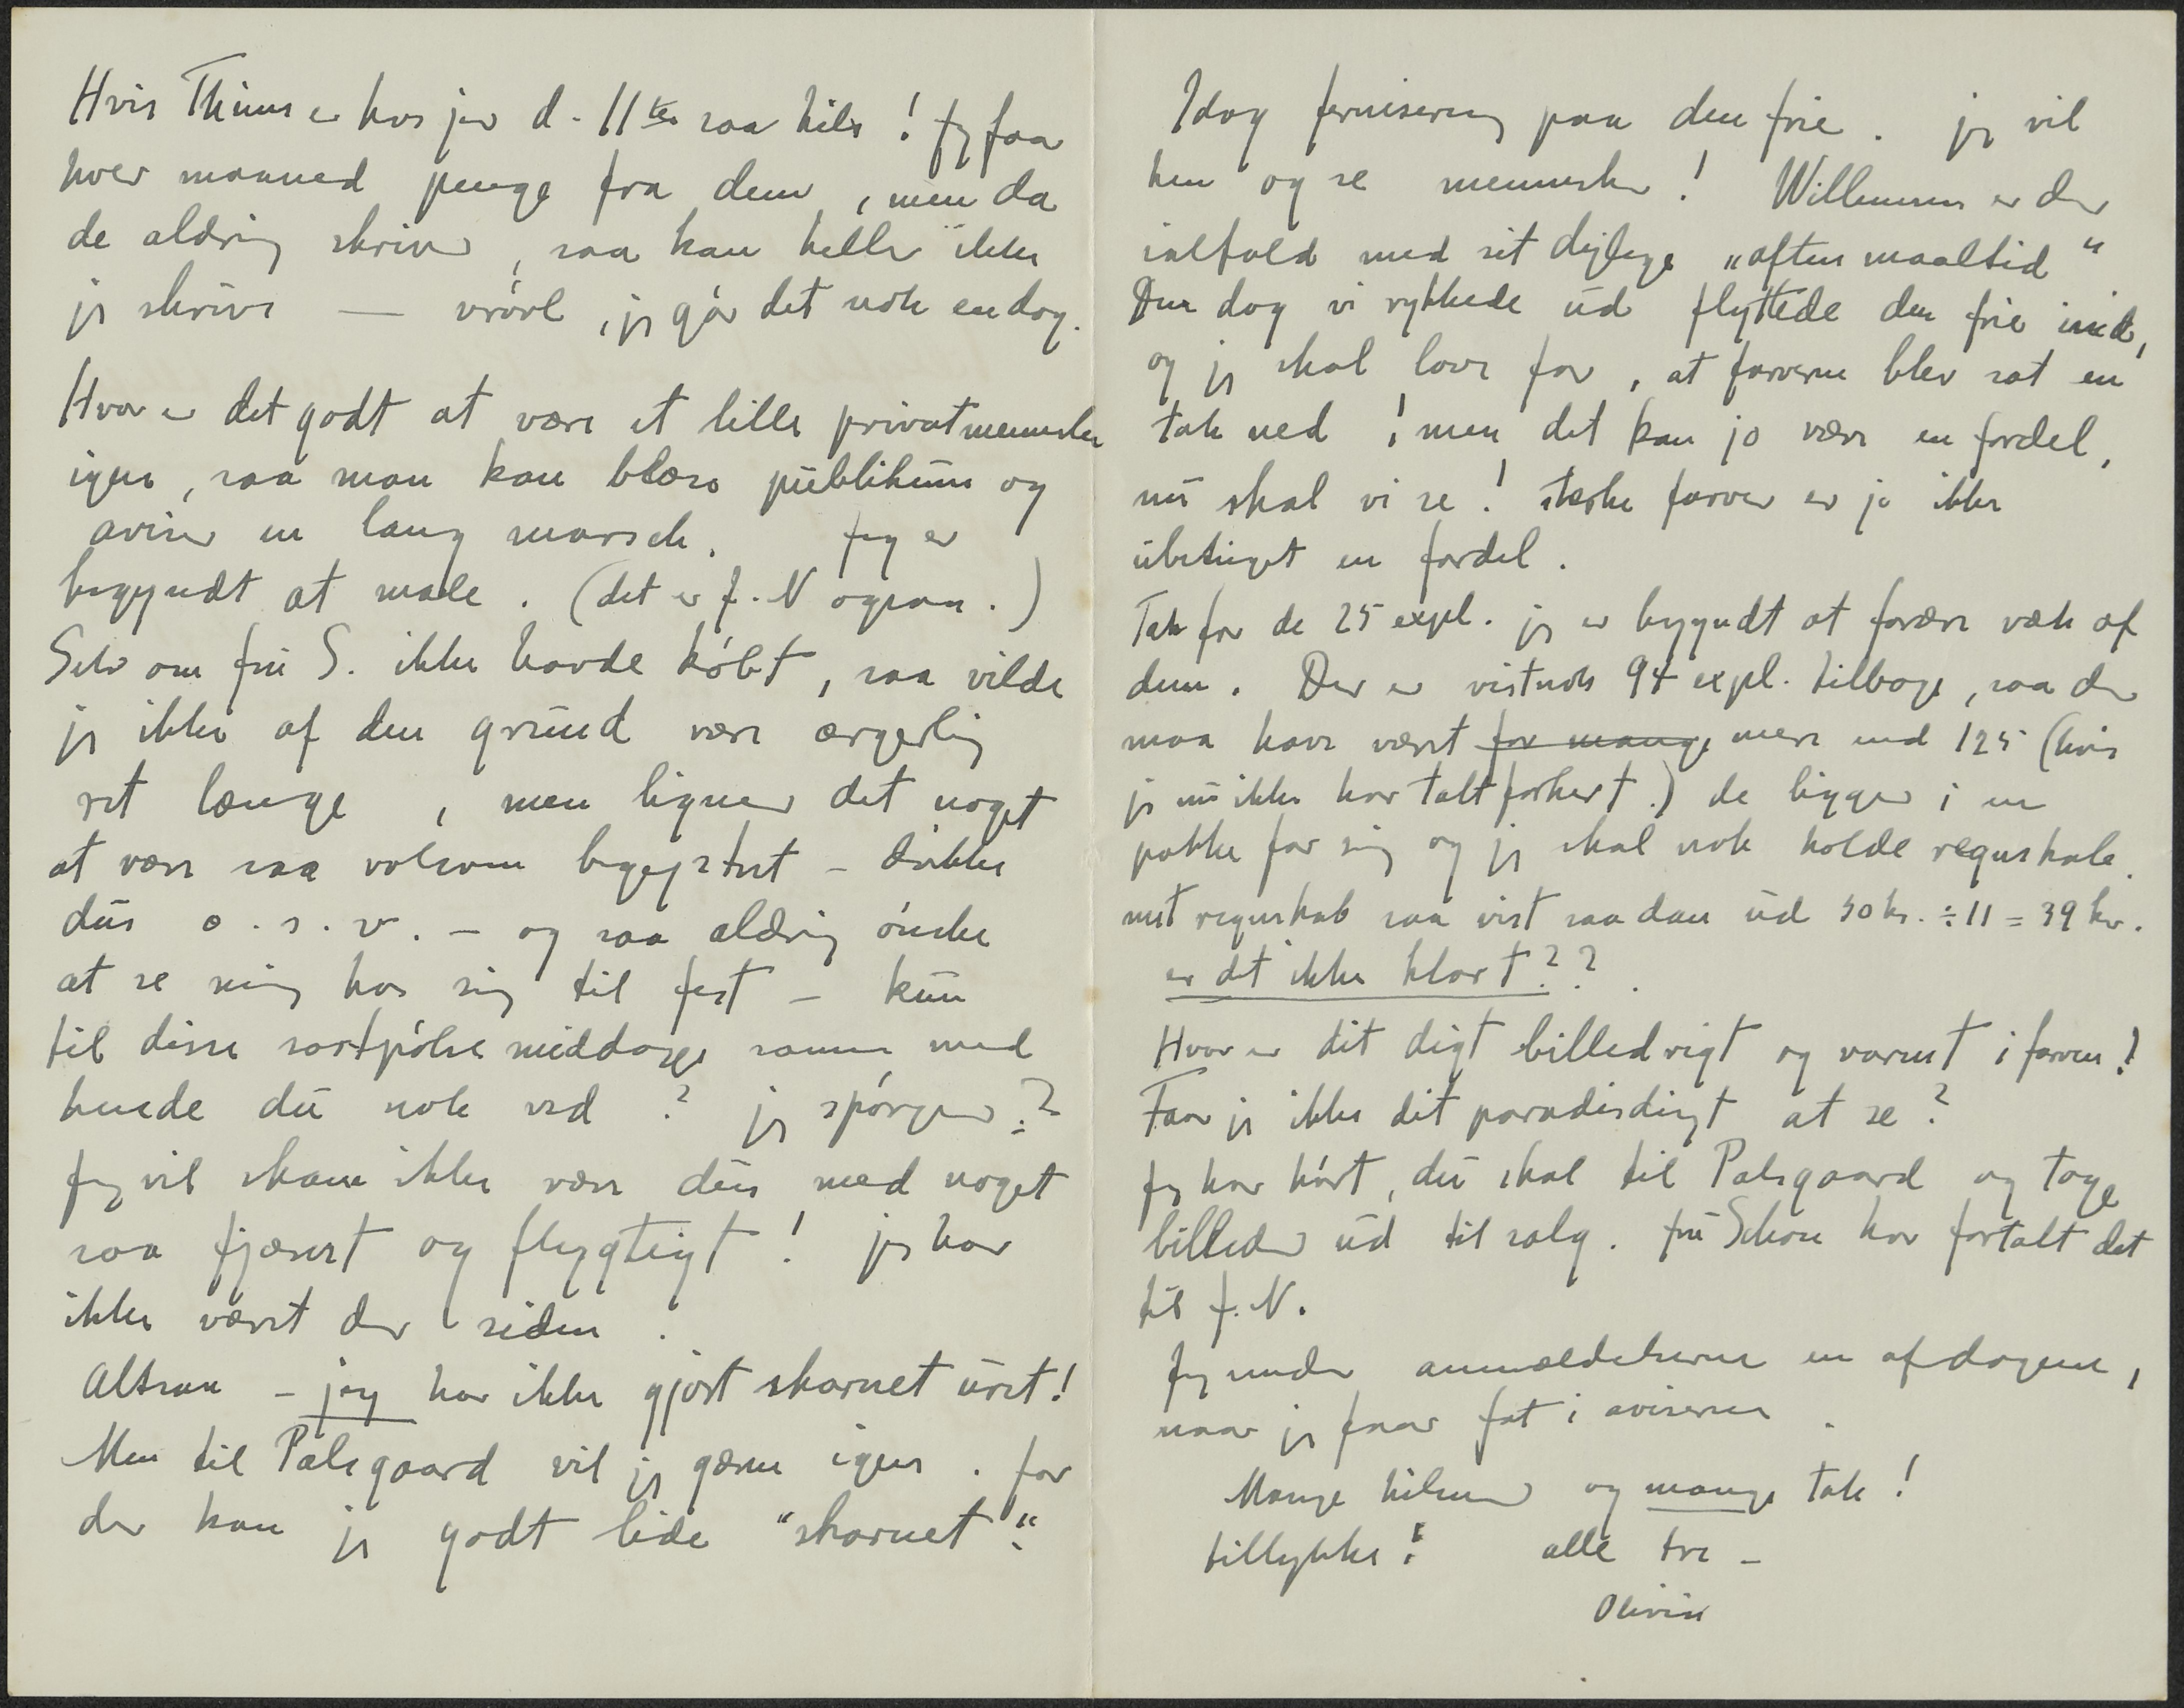 Hvis Thiims er hos jer d. 11te saa hils! Jeg faar
hver maaned penge fra dem, men da
de aldrig skriver, saa kan heller ikke
jeg skrive — vrövl, jeg gör det nok en dag.
Hvor er det godt at være et lille privatmenneske
igen, saa man kan blæse publikum og
aviser en lang marsch. Jeg er
begyndt at male. (det er J.N ogsaa.)
Selv om fru S. ikke havde köbt, saa vilde
jeg ikke af den grund være ærgerlig
ret længe, men ligner det noget
at være saa volsom begejstret – drikke
dus o.s.v. – og saa aldrig önske
at se mig hos sig til fest – kun
til disse sortpölse middage sammen med
hende du nok ved? jeg spörger?
Jeg vil skam ikke være dus med noget
saa fjæset og flygtigt! jeg har
ikke været der siden.
Altsaa – jeg har ikke gjort skarnet uret!
Men til Palsgaard vil jeg gærne igen. for
der kan jeg godt lide "skarnet".
Idag fernisering paa den frie. jeg vil
hen og se mennesker! Willumsen er der
ialfald med sit dejlige „aftensmaaltid"
Den dag vi rykkede ud flyttede den frie ind,
og jeg skal love for, at farverne blev sat en
tak ned! men det kan jo være en fordel,
nu skal vi se! stærke farver er jo ikke
ubetinget en fordel.
Tak for de 25 expl. jeg er begyndt at forære væk af
dem. Der er vistnok 94 expl. tilbage, saa der
maa have været for mange mere end 125 (hvis
jeg nu ikke har talt forkert.) de ligger i en
pakke for sig og jeg skal nok holde regnskab.
mit regnskab saa vist saadan ud 50 kr. ÷ 11 = 39 kr.
er det ikke klart??
Hvor er dit digt billedrigt og varmt i farven!
Faar jeg ikke dit paradisdigt at se?
Jeg har hört, du skal til Palsgaard og tage
billeder ud til salg. fru Schou har fortalt det
til J.N.
Jeg sender anmældelserne en af dagene,
naar jeg faar fat i aviserne.
Mange hilsener og mange tak!
tillykke! alle tre –
Olivia